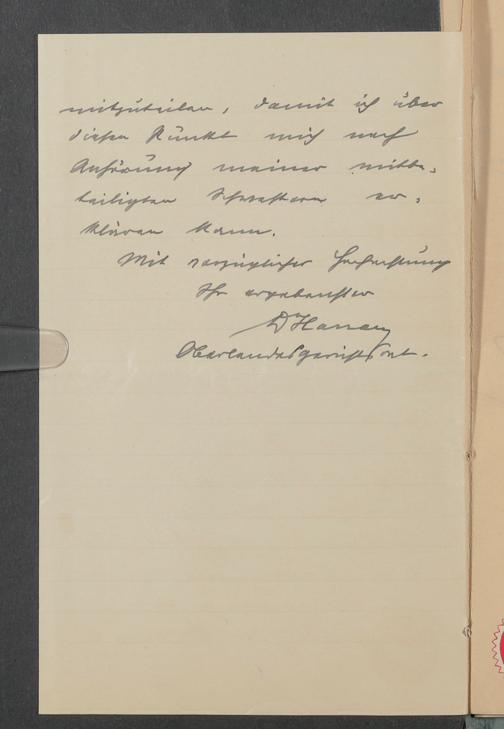 mitzuteilen, damit ich über
diesen Punkt mich nach
Anhörung meiner mitbe-
teiligten Schwestern er-
klären kann.
Mit vorzüglicher Hochachtung
Ihr ergebenster
Dr
Oberlandesgerichtsrat.